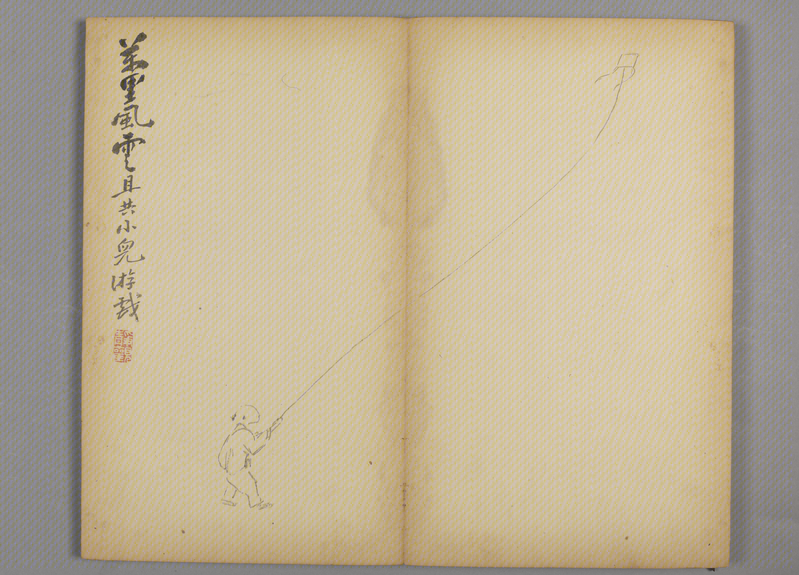 萬里風雲且共小兒游戲